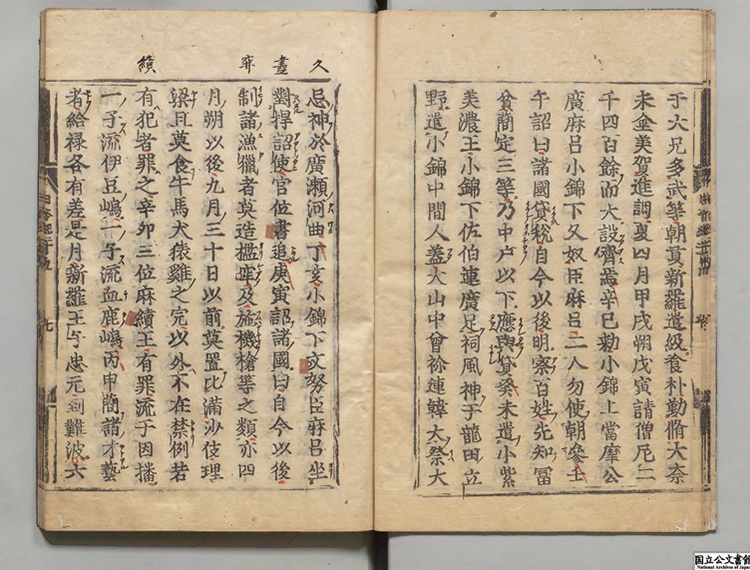 于大兄多武等朝貢新羅遣級飡朴勤脩大奈
末金美賀進調夏四月甲戌朔戊寅請僧尼二
千四百餘而大設齊焉辛巳勅小錦上當摩公
廣麻呂小錦下久奴臣麻呂二人勿使朝參壬
午詔曰諸國貸税自今以後明察百姓先知冨
貧簡定三等乃中戸以下應與貸癸未遣小紫
美濃王小錦下佐伯連廣足祠風神于龍田立
野遣小錦中間人盖大山中曽祢連韓犬祭大
久
盡
穽
績
忌神於廣瀬河曲丁亥小錦下文努臣麻呂坐
對捍詔使官位書追庚寅詔諸國曰自今以後
制諸漁獵者莫造檻及施機槍等之類亦四
月朔以後九月三十日以前莫置比滿沙伎理
梁且莫食牛馬犬猿雞之完以外不在禁例若
有犯者罪之辛卯三位麻續王有罪流于因播
一子流伊豆嶋一子流血鹿嶋丙申簡諸才藝
者給禄各有差是月新羅王子忠元到難波大
九
国立公文書館
National Archives of Japan